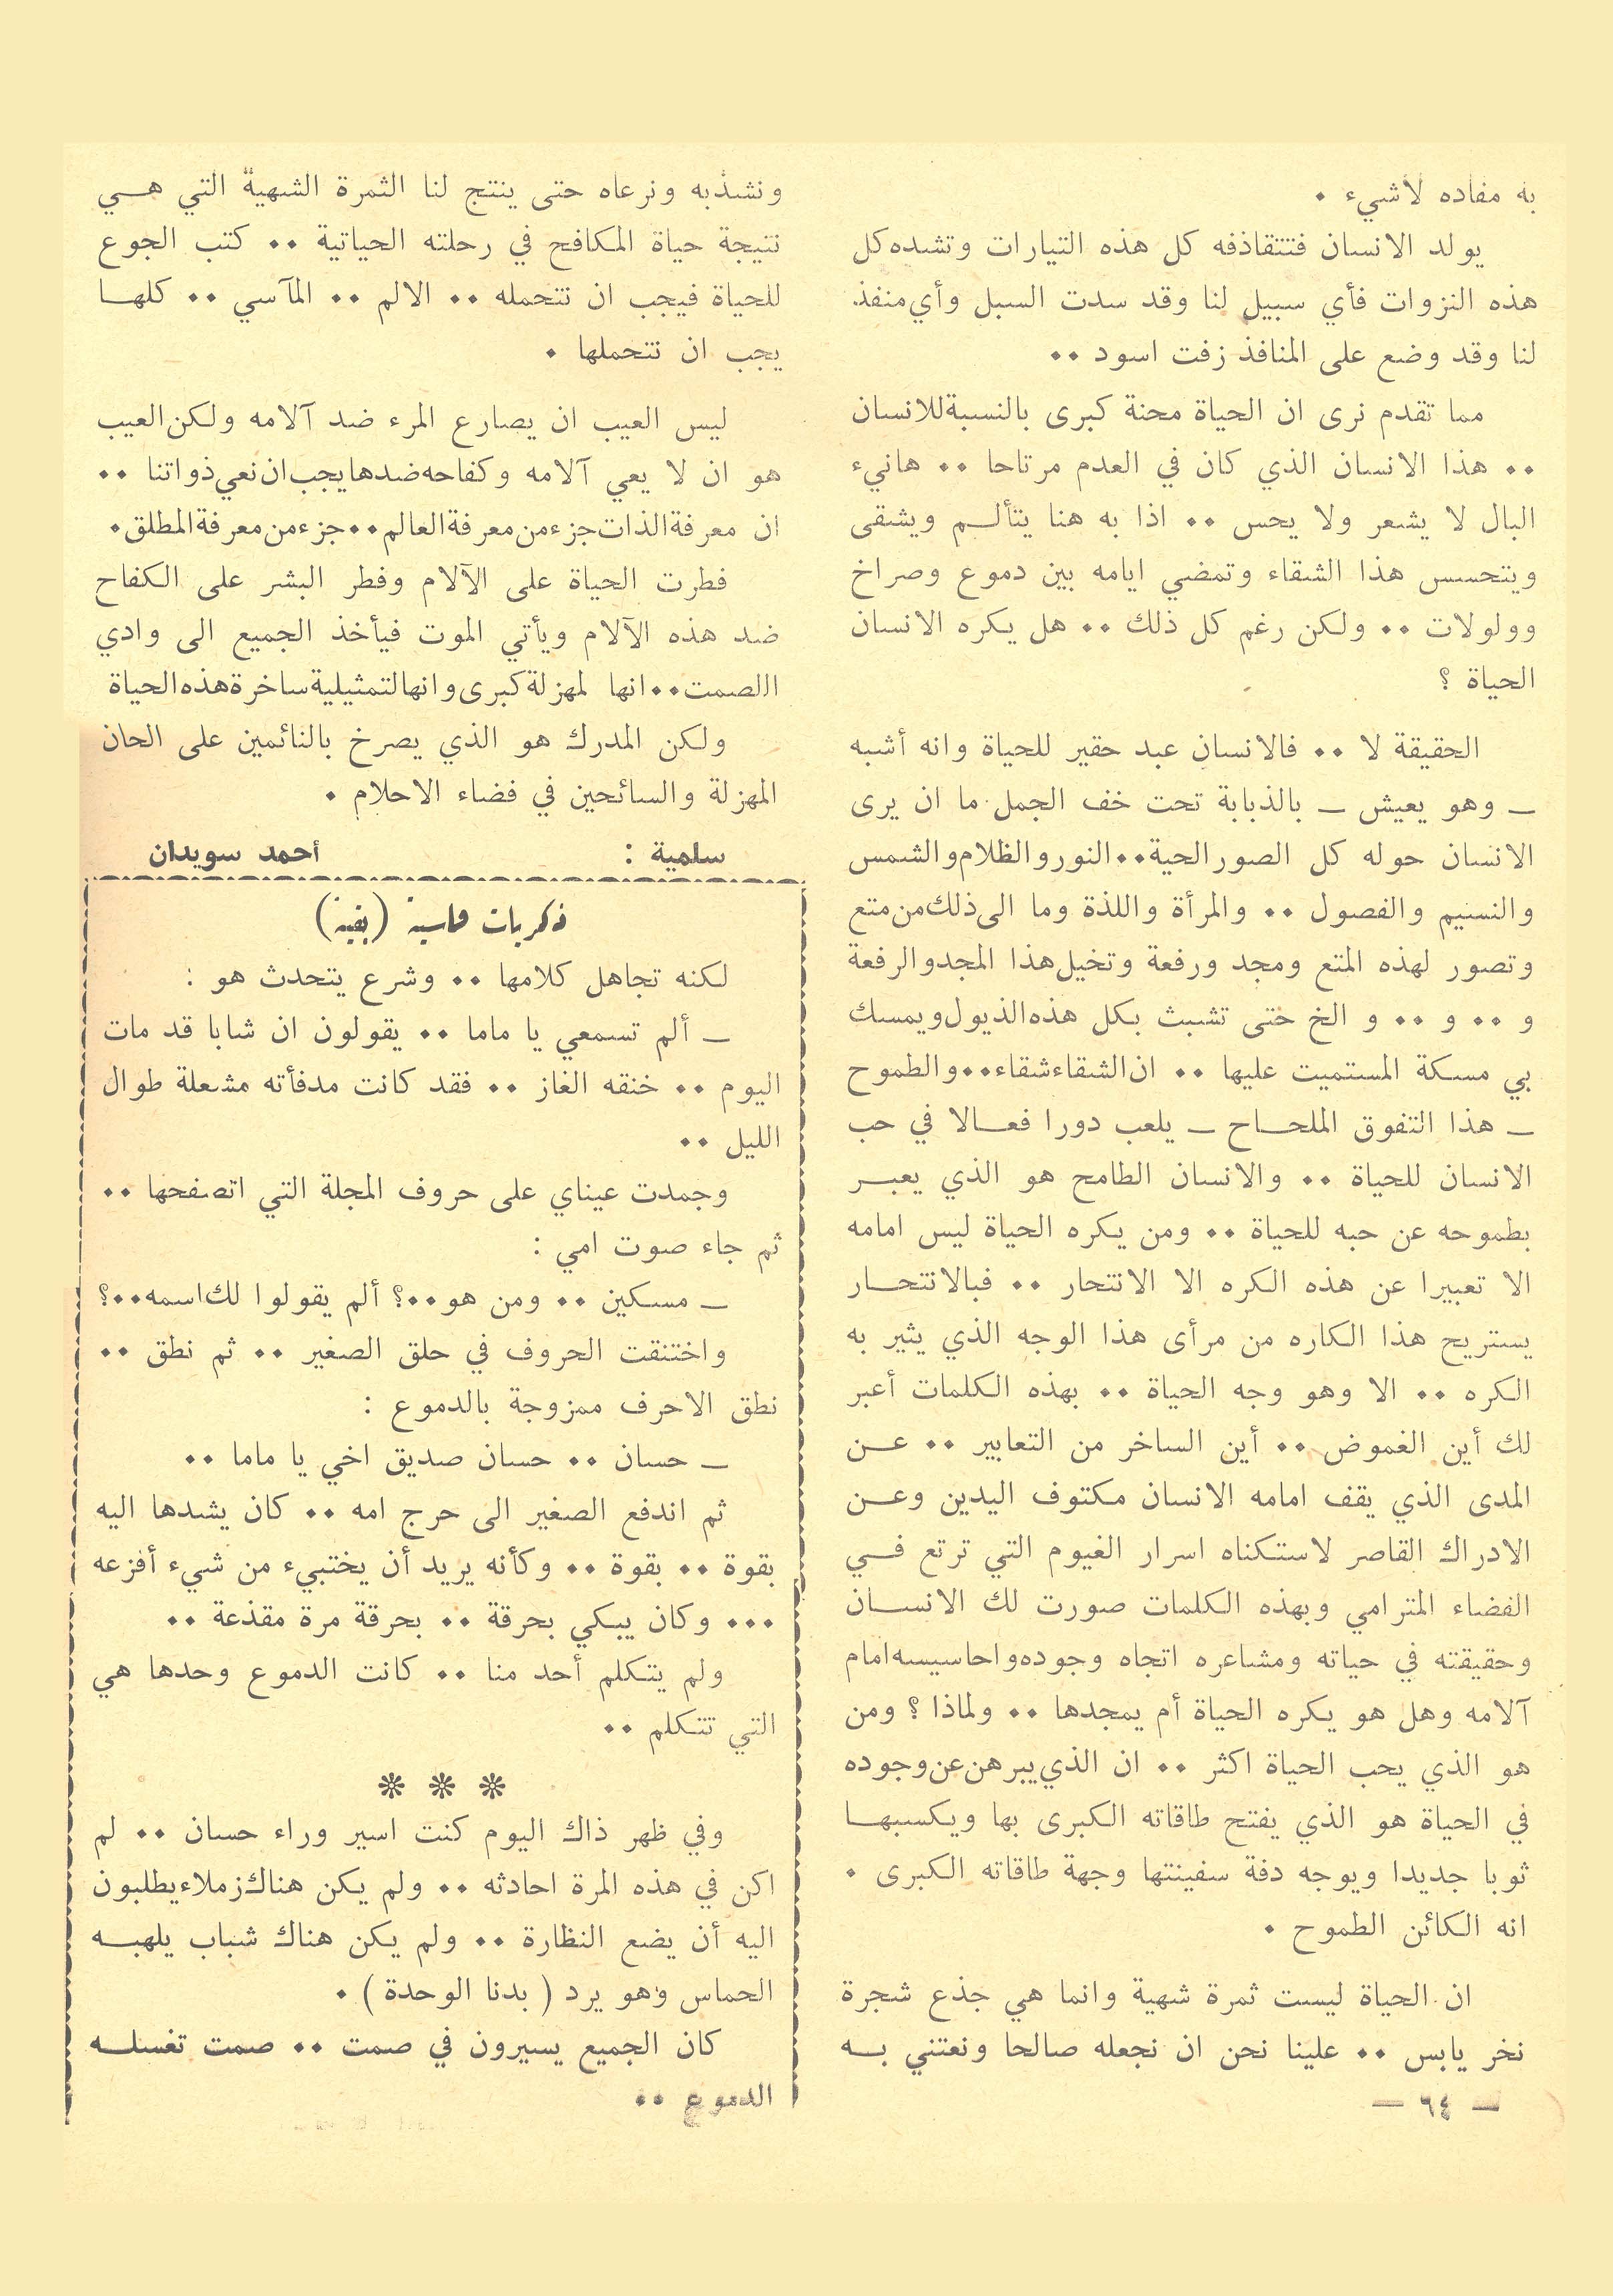 به مفاده لاشيء ٠
يولد الانسان فتتقاذفه كل هذه التيارات وتشده كل
هذه النزوات فأي سبيل لنا وقد سدت السبل وأي منفذ
لنا وقد وضع على المنافذ زفت اسود ٠٠
مما تقدم نرى ان الحياة محنة كبرى بالنسبة للانسان
٠٠ هذا الانسان الذي كان في العدم مرتاحا ٠٠ هانيء
البال لا يشعر ولا يحس ٠٠ اذا به هنا يتألم ويشقى
ويتحسس هذا الشقاء وتمضي ايامه بين دموع وصراخ
وولولات ٠٠ ولكن رغم كل ذلك ٠٠ هل يكره الانسان
الحياة ؟
الحقيقة لا ٠٠ فالانسان عبد حقير للحياة وانه أشبه
ـ وهو يعيش ـ بالذبابة تحت خف الجمل ما ان يرى
الانسان حوله كل الصور الحية ٠٠ النور والظلام والشمس
والنسيم والفصول ٠٠ والمرأة واللذة وما الى ذلك من متع
وتصور لهذه المتع ومجد ورفعة وتخيل هذا المجد والرفعة
و ٠٠ و ٠٠ و الخ ختى تشبث بكل هذه الذيول ويمسك
بي مسكة المستميت عليها ٠٠ ان الشقاء شقاء ٠٠ والطموح
ـ هذا التفوق الملحاح ـ يلعب دورا فعالا في حب
الانسان للحياة ٠٠ والانسان الطامح هو الذي يعبر
بطموحه عن حبه للحياة ٠٠ ومن يكره الحياة ليس امامه
الا تعبيرا عن هذه الكره الا الانتحار ٠٠ فبالانتحار
يستريح هذا الكاره من مرأى هذا الوجه الذي يثير به
الكره ٠٠ الا وهو وجه الحياة ٠٠ بهذه الكلمات أعبر
لك أين الغموض ٠٠ أين الساخر من التعابير ٠٠ عن
المدى الذي يقف امامه الانسان مكتوف اليدين وعن
الادراك القاصر لاستكناه اسرار الغيوم التي ترتع في
الفضاء المترامي وبهذه الكلمات صورت لك الانسان
وحقيقته في حياته ومشاعره اتجاه وجوده واحاسيسه امام
آلامه وهل هو يكره الحياة أم يمجدها ٠٠ ولماذا ؟ ومن
هو الذي يحب الحياة اكثر ٠٠ ان الذي يبرهن عن وجوده
في الحياة هو الذي يفتح طاقاته الكبرى بها ويكسبها
ثوبا جديدا ويوجه دفة سفينتها وجهة طاقاته الكبرى ٠
انه الكائن الطموح ٠
ان الحياة ليست ثمرة شهية وانما هي جذع شجرة
نخر يابس ٠٠ علينا نحن ان نجعله صالحا ونعتني به
ـ ٦٤ ـ
ونشذبه ونرعاه حتى ينتج لنا الثمرة الشهية التي هي
نتيجة حياة المكافح في رحلته الحياتية ٠٠ كتب الجوع
للحياة فيجب ان نتحمله ٠٠ الالم ٠٠ المآسي ٠٠ كلها
يجب ان نتحملها ٠
ليس العيب ان يصارع المرء ضد آلامه ولكن العيب
هو ان لا يعي آلامه وكفاحه ضدها يجب ان نعي ذواتنا ٠٠
ان معرفة الذات جزء من معرفة العالم ٠٠ جزء من معرفة المطلق ٠
فطرت الحياة على الآلام وفطر البشر على الكفاح
ضد هذه الآلام ويأتي الموت فيأخذ الجميع الى وادي
االصمت ٠٠ انها لمهزلة كبرى وانها لتمثيلية ساخرة هذه الحياة
ولكن المدرك هو الذي يصرخ بالنائمين على الحان
المهزلة والسائحين في فضاء الاحلام ٠
سلمية : أحمد سويدان
ذكريات قاسية (بقية)
لكنه تجاهل كلامها ٠٠ وشرع يتحدث هو :
ـ ألم تسمعي يا ماما ٠٠ يقولون ان شابا قد مات
اليوم ٠٠ خنقه الغاز ٠٠ فقد كانت مدفأته مشعلة طوال
الليل ٠٠
وجمدت عيناي على حروف المجلة التي اتصفحها ٠٠
ثم جاء صوت امي :
ـ مسكين ٠٠ ومن هو ٠٠؟ ألم يقولوا لك اسمه ٠٠؟
واختنقت الحروف في حلق الصغير ٠٠ ثم نطق ٠٠
نطق الاحرف ممزوجة بالدموع :
ـ حسان ٠٠ حسان صديق اخي يا ماما ٠٠
ثم اندفع الصغير الى حرج امه ٠٠ كان يشدها اليه
بقوة ٠٠ بقوة ٠٠ وكأنه يريد أن يختبيء من شيء أفزعه
٠٠٠ وكان يبكي بحرقة ٠٠ بحرقة مرة مقذعة ٠٠
ولم يتكلم أحد منا ٠٠ كانت الدموع وحدها هي
التي تتكلم ٠٠
❊ ❊ ❊
وفي ظهر ذاك اليوم كنت اسير وراء حسان ٠٠ لم
اكن في هذه المرة احادثه ٠٠ ولم يكن هناك زملاء يطلبون
اليه أن يضع النظارة ٠٠ ولم يكن هناك شباب يلهبه
الحماس وهو يرد ( بدنا الوحدة ) ٠
كان الجميع يسيرون في صمت ٠٠ صمت تغسله
الدموع ٠٠